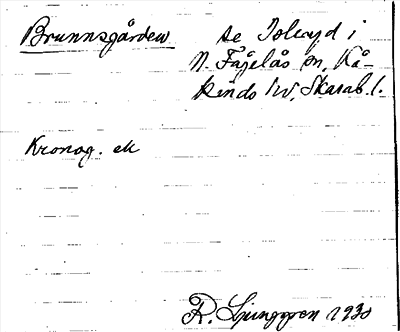 Brunnsgården se Toleryd i
N. Fågelås sn, Kå-
kinds hd, Skarab. l.
Kronog. ek
R. Ljunggren 1930